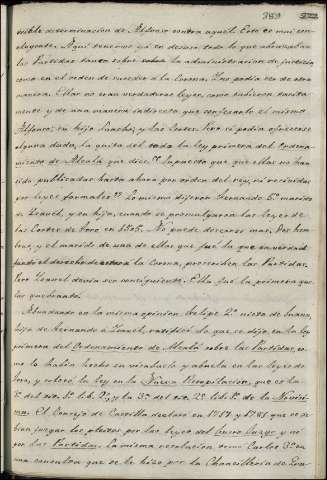 389
sible determinacion de Alfonso contra aquel. Esto es mui con-
cluyente. Aqui tenemos ya en desuso todo lo que ordenaban
las Partidas tanto sobre la administracion de justicia,
como en el orden de suceder a la Corona. No podia ser de otra
manera. Ellas no eran verdaderas leyes, como hubieron tacita-
mente y de una manera indirecta que confesarlo el mismo
Alfonso, su hijo Sancho, y las Cortes. Pero si podia ofrecerse
alguna duda, la quita del todo la ley primera del Ordena-
miento de Alcalá que dice "Supuesto que ellas no han
sido publicadas hasta ahora por orden del rey, ni recividas
por leyes formales." Lo mismo dijeron Fernando 5.º marido
de Isavel, y su hija, cuando se promulgaron las leyes de
las Cortes de Toro en 1505. No puede desearse mas. Dos hem-
bras, y el marido de una de ellas que fué la que
la Corona, proscriben las Partidas.
Pero Isavel devia ser consiguiente. Ella fué la primera que
las quebrantó.
Abundando en la misma opinion Felipe 2.º nieto de Juana,
hija de Fernando é Isavel, ratificó lo que se dijo, en la ley
primera del Ordenamiento de Alcalá sobre las Partidas, co-
mo lo habian hecho su visabuelo y abuela en las leyes de
Toro, y colocó la ley en la Nueva Recopilacion, que es la
3.ª del tit. 1.º lib. 2.º, y la 3.ª del tit. 2.º lib. 3.º de la Novísi-
ma. El Consejo de Castilla declaró en 1757 y 1781 que se de-
bian juzgar los pleitos por las leyes del Fuero Juzgo y no
por las Partidas. La misma resolucion tomó Carlos 3.º en
una consulta que se le hizo por la Chancilleria de Gra-